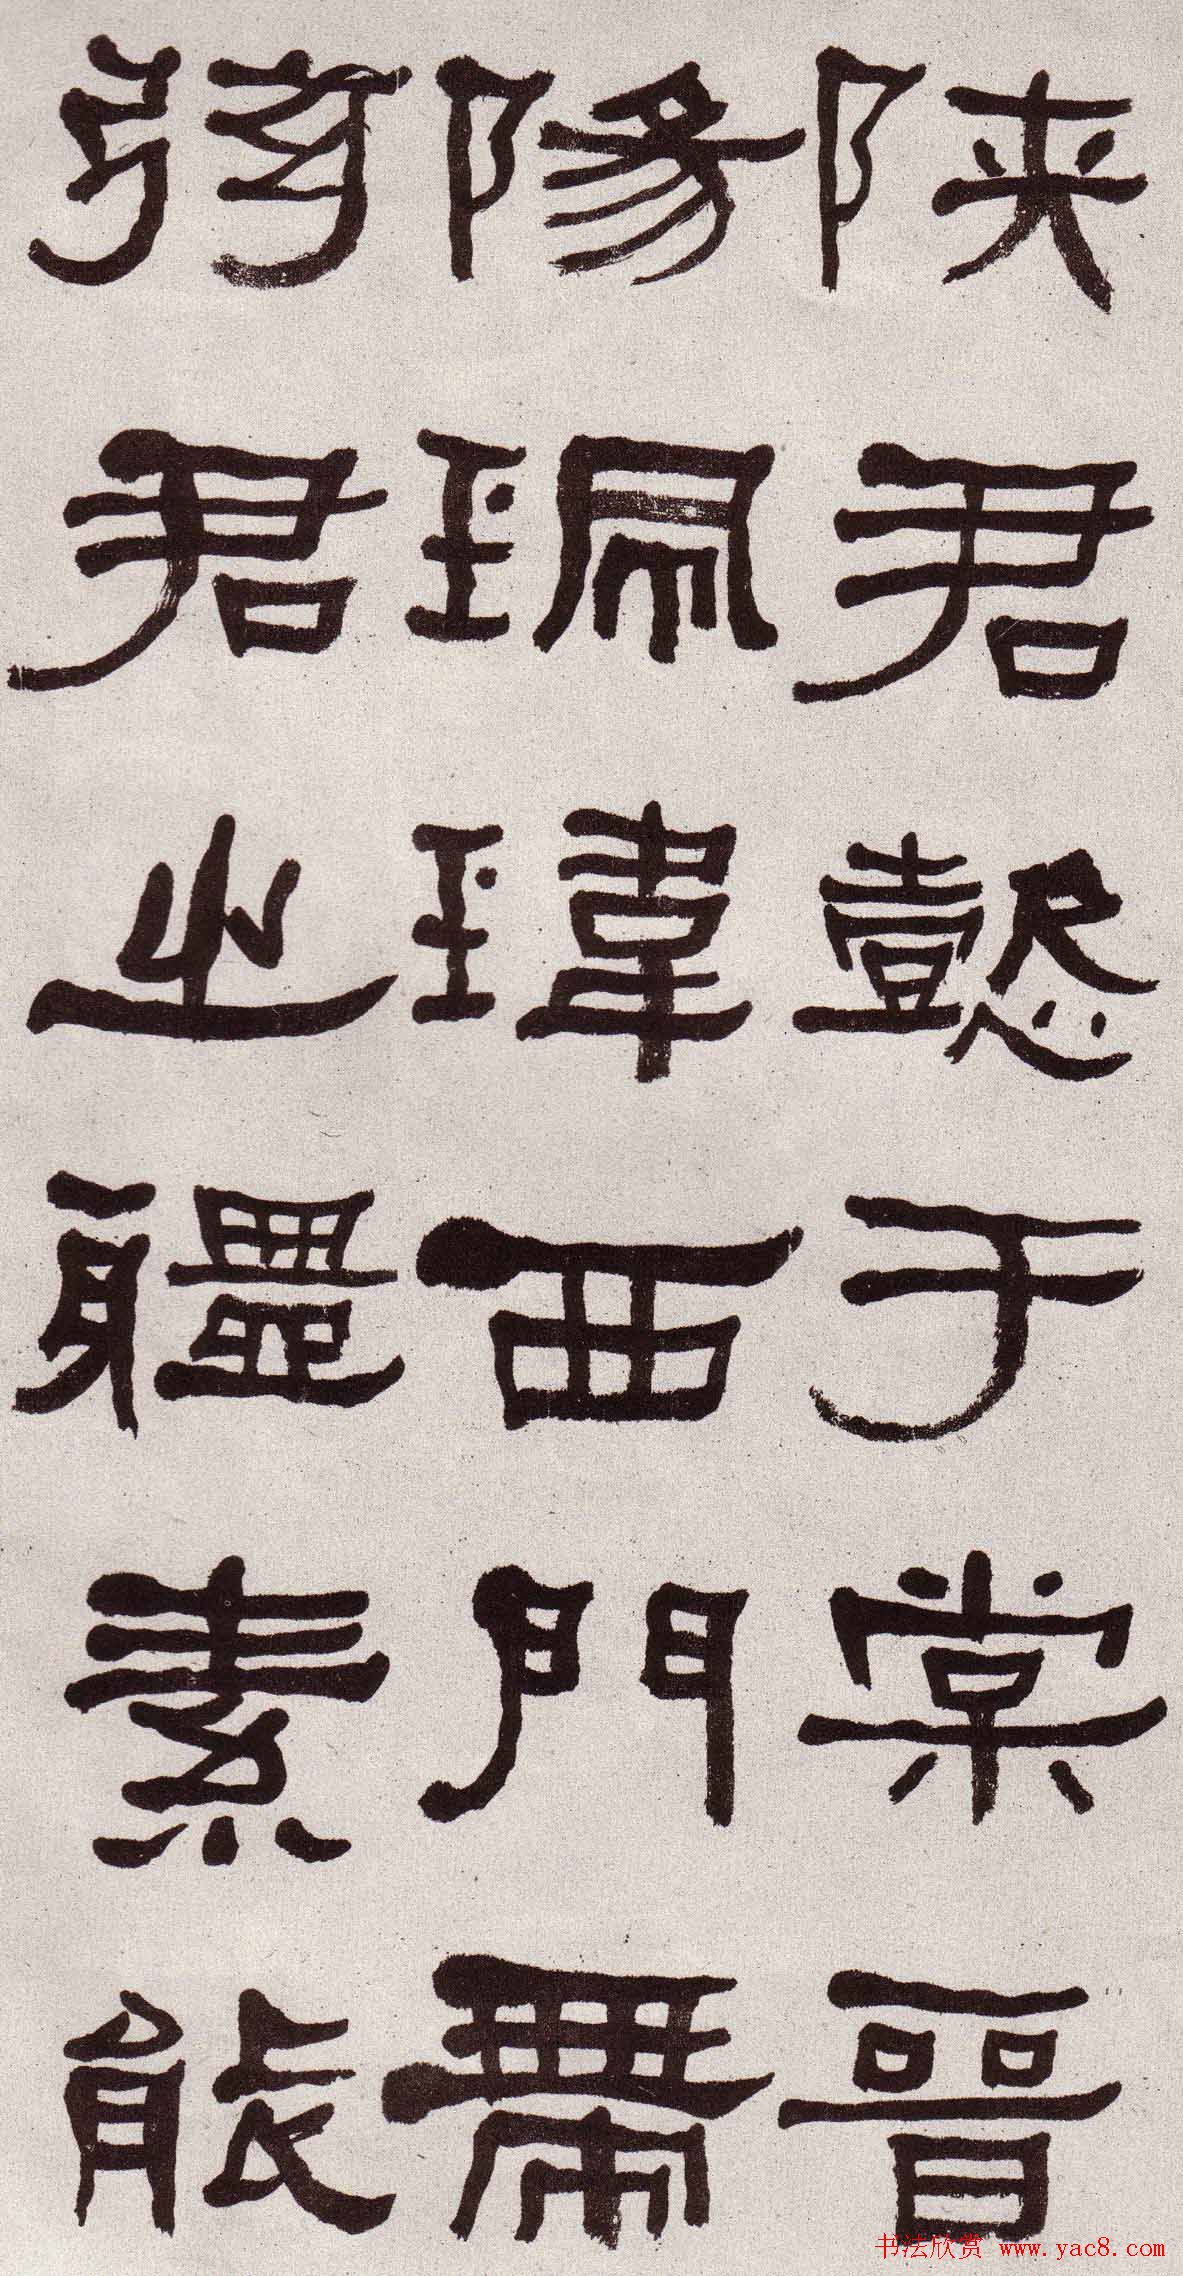 陕君懿于棠晉
陽珮瑋西門帶
弦君之體素能
书法欣赏 www.yac8.com